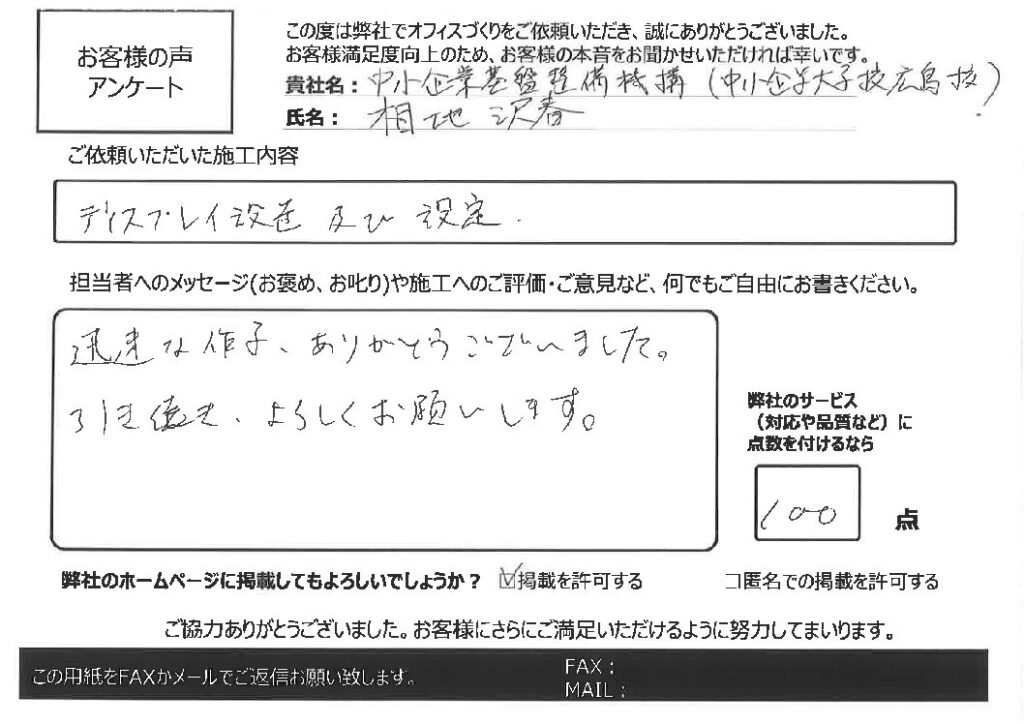 お客様の声
アンケート
この度は弊社でオフィスづくりをご依頼いただき、誠にありがとうございました。
お客様満足度向上のため、お客様の本音をお聞かせいただければ幸いです。
貴社名: 中小企業基盤整備機構(中小企業大学校広島校)
氏名: 相地 沢春
ご依頼いただいた施工内容
ディスプレイ設置 及び 設定.
担当者へのメッセージ(お褒め、お叱り)や施工へのご評価・ご意見など、何でもご自由にお書きください。
迅速な作業、ありがとうございました。
引き続き、よろしくお願いします。
弊社のサービス
(対応や品質など)に
点数を付けるなら
100 点
弊社のホームページに掲載してもよろしいでしょうか? ☑掲載を許可する □匿名での掲載を許可する
ご協力ありがとうございました。お客様にさらにご満足いただけるように努力してまいります。
この用紙をFAXかメールでご返信お願い致します。
FAX:
MAIL: